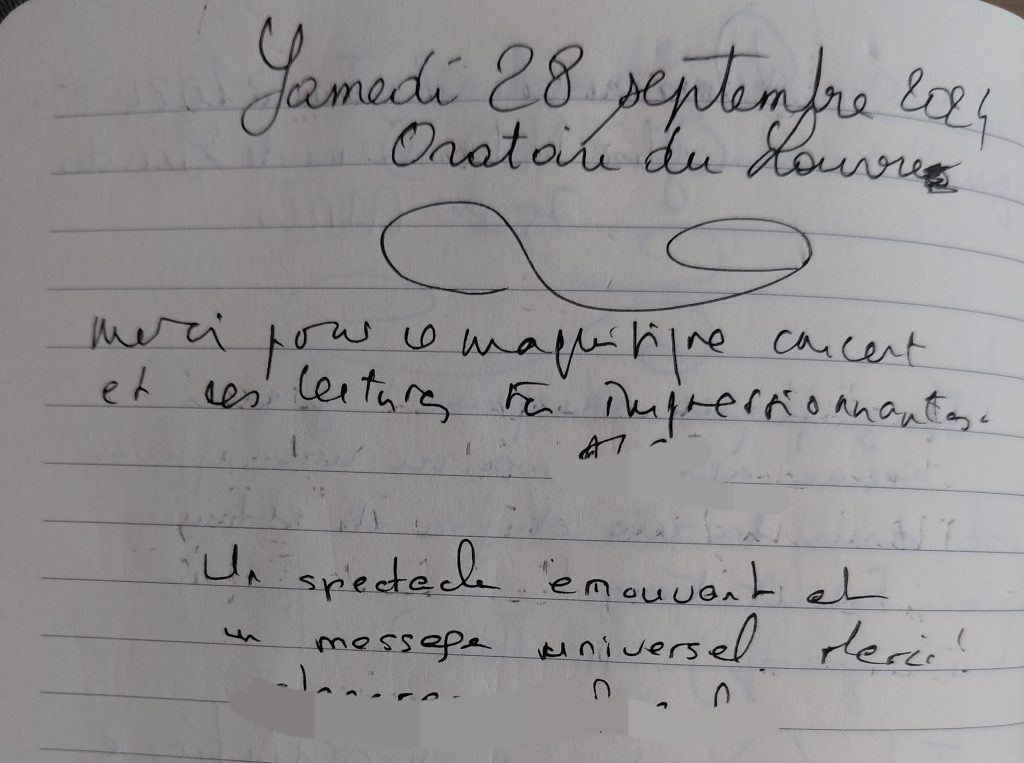 Samedi 28 septembre 2024
Oratoire du Louvre
merci pour ce magnifique concert
et ces lectures impressionnantes.
Un spectacle emouvant et
un message universel. Merci!